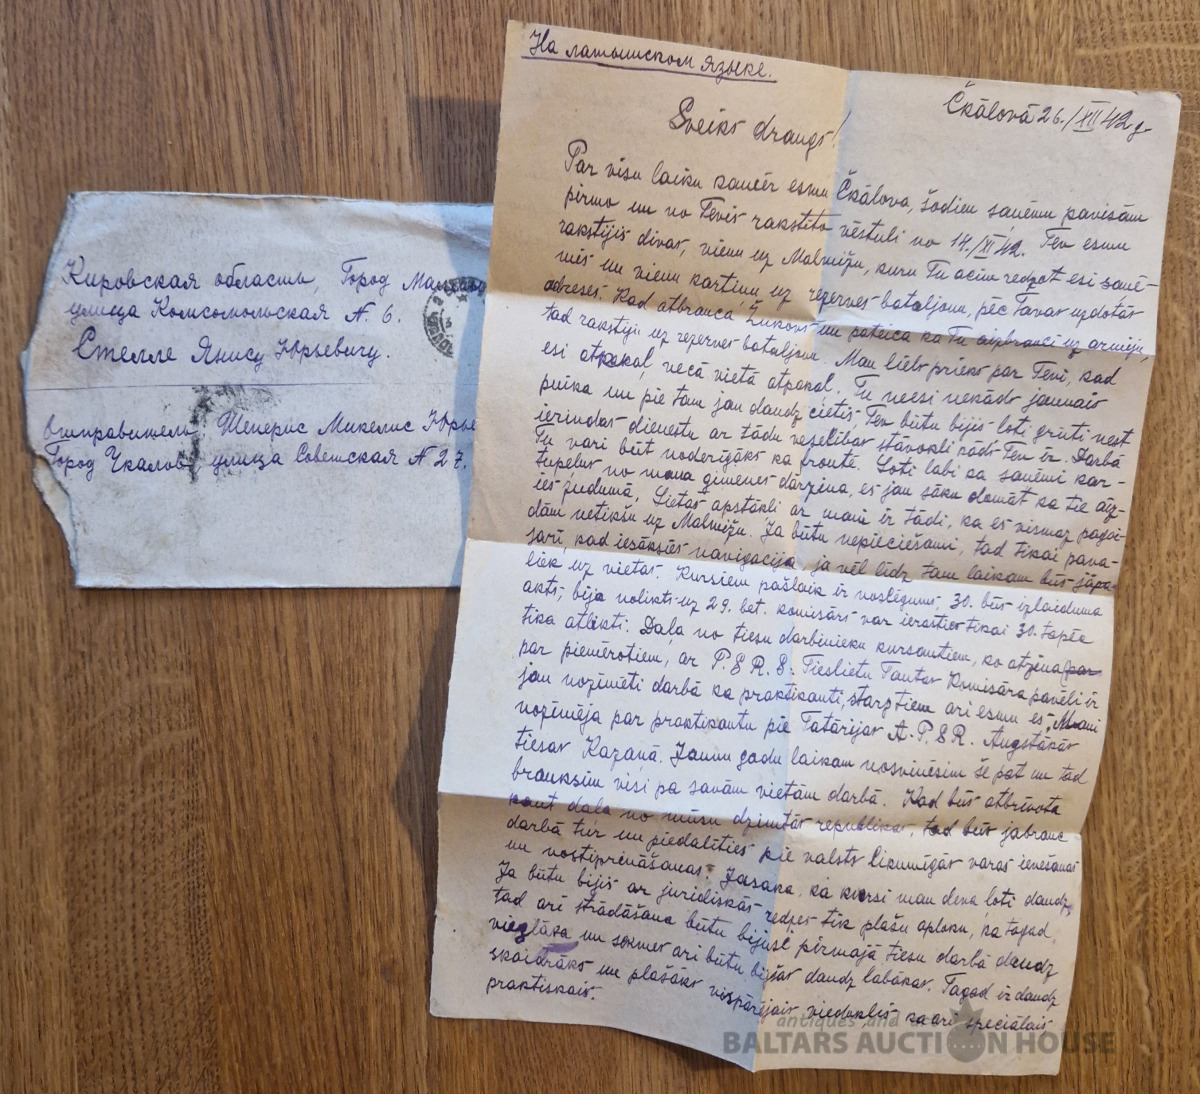 Кировская область, Город Мал
улица Комсомольская N. 6.
Стелле Янису Юрьевичу.
Отправитель Шеперис Микелис Юрье
Город Чкалов, улица Советская N 27.
На латышском языке.
Čkālovā 26./XII 42 g.
Sveiks draugs!
Par visu laiku kamēr esmu Čkālova, šodien saņēmu pavisam
pirmo un no Tevis rakstīto vēstuli no 14./XI 42. Tev esmu
rakstījis divas, vienu uz Malmižu, kuru Tu acīm redzot esi saņē-
mis un vienu kartiņu uz rezerves bataljonu, pēc Tavas uzdotās
adreses. Kad atbrauca Žukovs un pateica ka Tu aizbrauci uz armiju,
tad rakstīju uz rezerves bataljonu. Man liels prieks par Tevi, kad
esi atpakaļ, vecā vietā atpakaļ. Tu neesi nekāds jaunais
puika un pie tam jau daudz cietis, Tev būtu bijis ļoti grūti nest
ierindas dienestu ar tādu veselības stāvokli kāds Tev ir. Darbā
Tu vari būt noderīgāks kā frontē. Ļoti labi ka saņēmi kar-
tupeļus no mana ģimenes dārziņa, es jau sāku domāt ka tie aiz-
ies zudumā. Lietas apstākļi ar mani ir tādi, ka es vismaz pagai-
dām netikšu uz Malmižu. Ja būtu nepieciešami, tad tikai pava-
sarī, kad iesāksies navigācija, ja vēl līdz tam laikam būs jāpa-
liek uz vietas. Kursiem pašlaik ir noslēgums, 30. būs izlaiduma
akts, bija nolikts uz 29. bet komisārs var ierasties tikai 30. tapēc
tika atlikti. Daļa no tiesu darbinieku kursantiem, ko atzina par
par piemērotiem, ar P.S.R.S. Tieslietu Tautas Komisāra pavēli ir
jau nozīmēti darbā kā praktikanti, starp tiem arī esmu es. Mani
nozīmēja par praktikantu pie Tatārijas A.P.S.R. Augstākās
tiesas Kazaņā. Jaunu gadu laikam nosvinēsim še pat un tad
brauksim visi pa savām vietām darbā. Kad būs atbrīvota
kaut daļa no mūsu dzimtās republikas, tad būs jābrauc
darbā tur un piedalīties pie valsts likumīgās varas ieviešanas
un nostiprināšanas. Jāsaka, ka kursi man deva ļoti daudz,
Ja būtu bijis ar juridiskās redzes tik plašu aploku, kā tagad,
tad arī strādāšana būtu bijusē pirmajā tiesu darbā daudz
vieglāka un sekmes arī būtu bijušas daudz labākas. Tagad ir daudz
skaidrāks un plašāks vispārējais viedoklis kā arī speciālais
praktiskais.
antiques and
BALTARS AUCTION HOUSE